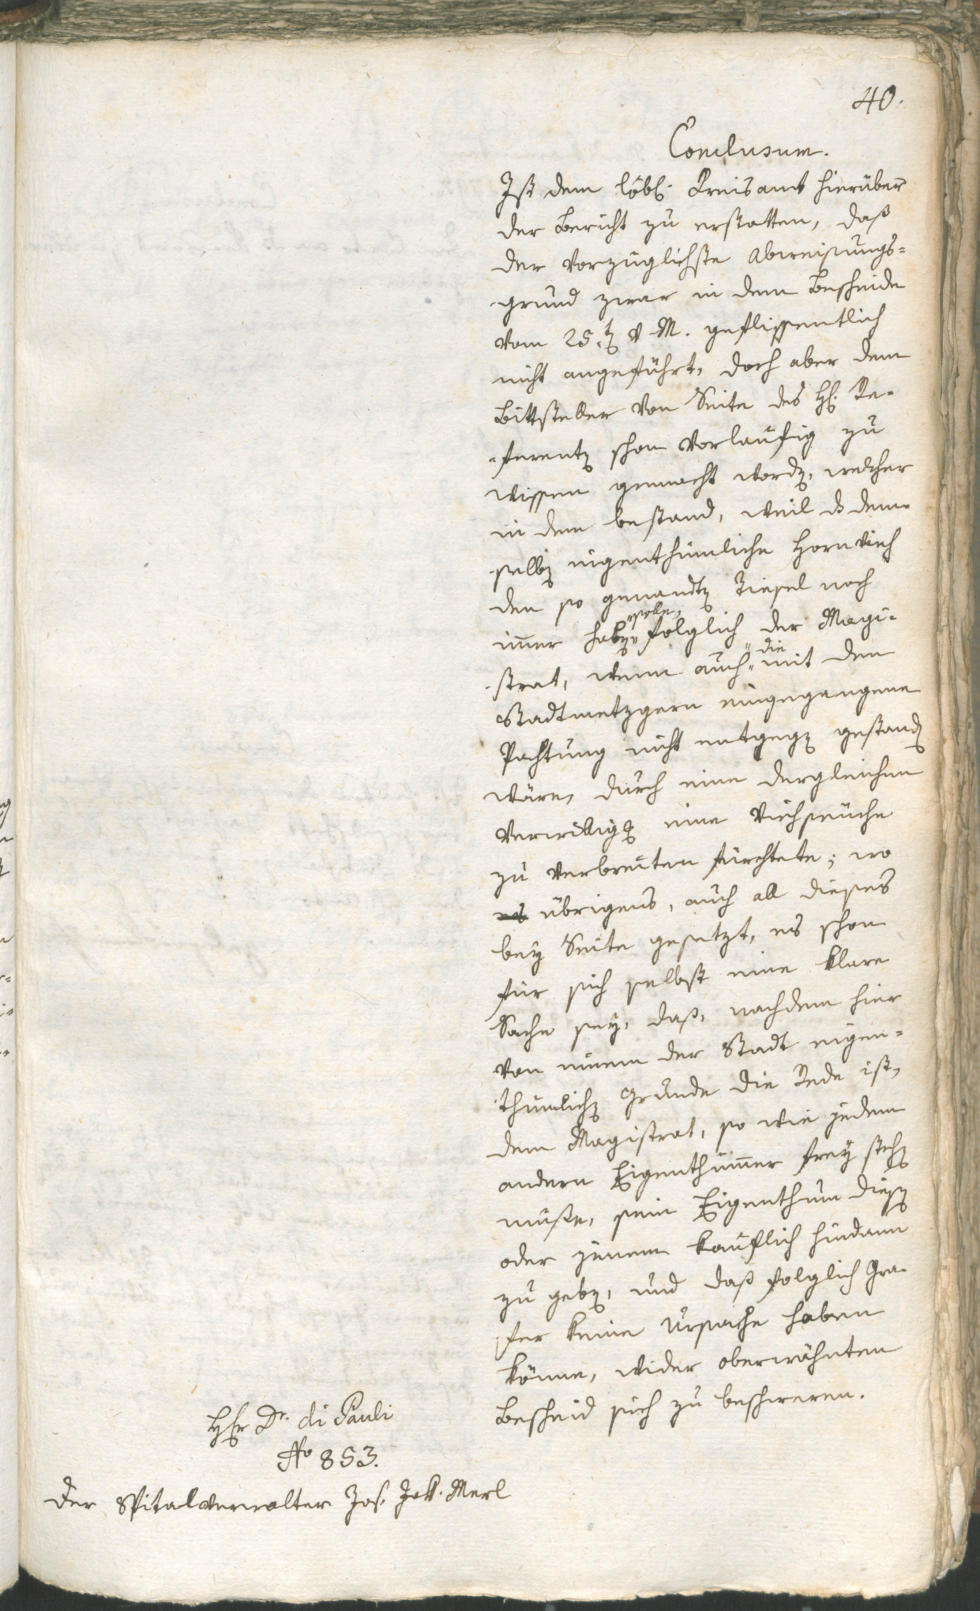 40.
Conclusum.
Ist dem löbl. Kreisamt hierüber
der Bericht zu erstatten, daß
der vorzüglichste Abweisungs-
grund zwar in dem Bescheide
vom 25.t v. M. geflissentlich
nicht angeführt, doch aber dem
Bittsteller von Seite des H. Re-
ferenten schon vorlaufig zu
wissen gemacht worden, welcher
in dem bestand, weil d dem-
selben eigenthümliche Hornvieh
den so genandten noch
immer haben solle, folglich der Magi-
strat, wenn auch die mit den
Stadtmetzgern eingegangene
Pachtung nicht entgegen gestanden
wäre, durch eine dergleichen
Verwilligg eine Viehseuche
zu verbreiten fürchtete; wo
es übrigens, auch all dieses
bey Seite gesetzt, es schon
für sich selbst eine klare
Sache sey, daß, nachdem hier
von einem der Stadt eigen-
thümlichen Grunde die Rede ist,
dem Magistrat, so wie jedem
andern Eigenthümmer frey stehen
müsse, sein Eigenthum diesen
oder jenem kauflich hindann
zu geben, und daß folglich Gra-
ser keine Ursache haben
könne, wider oberwähnten
Bescheid sich zu beschweren.
Hhr Dr. di Pauli
No 853.
Der Spitalverwalter Jos. Jak. Merl